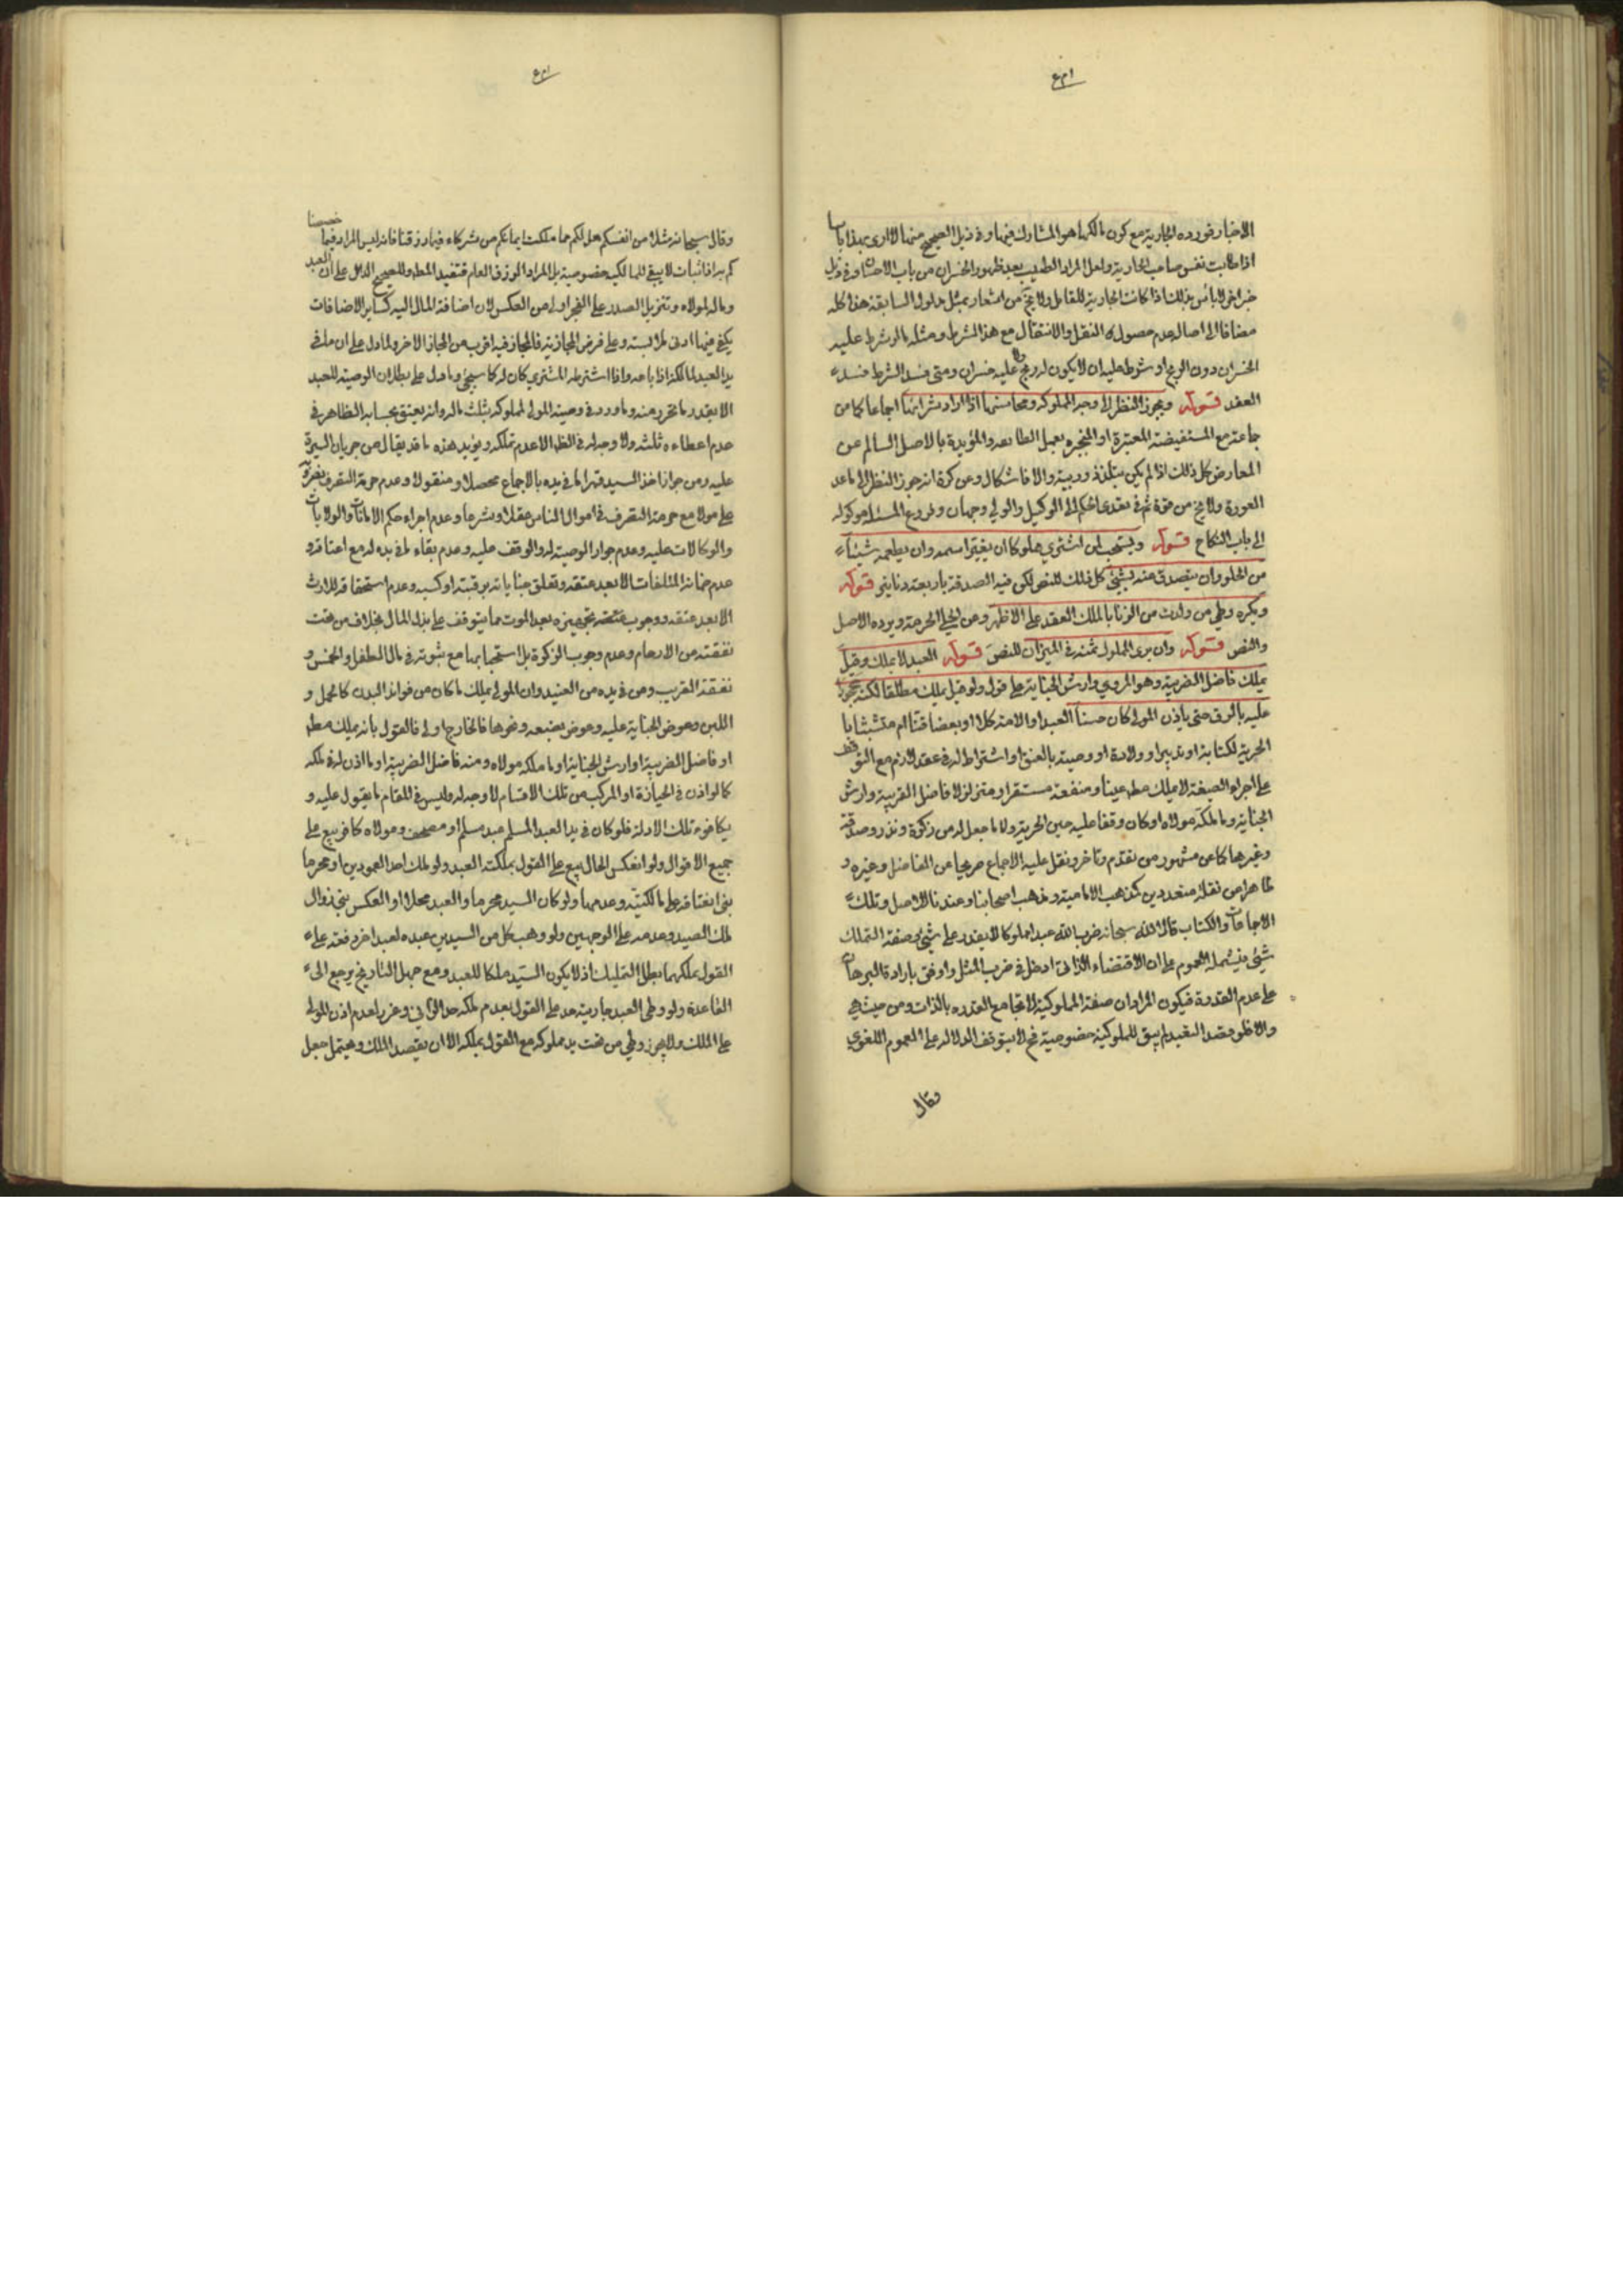 الاخبار فورده الجارية مع كون مالكها هو المشارك فيها وفي ذيل الصحيح منها لا ارى بهذا باسا
اذا طابت نفس صاحب الجارية ولعل المراد الطيب بعد ظهور الخسران من باب الاحسان وفي ذيل
خبر اخر لا بأس بذلك اذا كانت الجارية للقائل ولا يخ من اشعار بمثل مدلول السابقة هذا كله
مضافا الى اصالة عدم حصول النقل والانتقال مع هذا الشرط ومثله ما لو شرط عليه
الخسران دون الربح او شرط عليه ان لا يكون له ربح ولا عليه خسران ومتى فسد الشرط فسد
العقد قوله ويجوز النظر الى وجه المملوكة ومحاسنها اذا اراد شرائها اجماعا كما من
جماعة مع المستفيضة المعتبرة او المنجبرة بعمل الطايفة والمؤيدة بالاصل السالم عن
المعارض كل ذلك اذا لم يكن بتلذذ وريبة والا فاشكال وعن كرة انه جوز النظر الى ما عدا
العورة ولا يخ من قوة ثم في تعدي الحكم الى الوكيل والولي وجهان وفروع المسئلة موكولة
الى باب النكاح قوله ويستحب لمن اشتري مملوكا ان يغير اسمه وان يطعمه شيئا
من الحلو وان يتصدق عنه بشيئ كل ذلك للنص لكن فيه الصدقة باربعة دنانير قوله
ويكره وطي من ولدت من الزنا بالملك العقد على الاظهر وعن الحلي الحرمة ويرده الاصل
والنص قوله وان يرى المملوك ثمنه في الميزان للنص قوله العبد لا يملك وقيل
يملك فاضل الضريبة وهو المروي وارش الجناية على قول ولو قيل يملك مطلقا لكنه محجور
عليه بالرق حتى يأذن المولى كان حسنا العبد او الامة كلا او بعضا قنا ام متشبثا با
الحرية لكتابة او تدبير او ولادة او وصية بالعتق او اشتراط له في عقد لازم مع التوقف
على اجراء الصيغة لا يملك مطه عينا ومنفعة مستقرا ومتزلزلا فاضل الضريبة وارش
الجناية وما ملكه مولاه او كان وقفا عليه حين الحرية ولا ما جعل له من زكوة ونذر وصدقة
وغيرها كما عن مشهور من تقدم وتاخر ونقل عليه الاجماع صريحا عن الفاضل وغيره و
ظاهرا من نقلة متعددين كمذهب الامامية ومذهب اصحابنا وعندنا للاصل وتلك
الاجماعات والكتاب قال الله سبحانه ضرب الله عبدا مملوكا لا يقدر على شيئ وصفة التملك
شيئ فيشمله العموم على ان الاقتضاء الذاتي ادخل في ضرب المثل واوفق بارادة البرهان
على عدم القدرة فيكون المراد ان صفة المملوكية لا تجامع القدرة بالذات ومن حيث هي
ولا ظهر قصد التقييد لم يبق للمملوكية خصوصية فح لا يتوقف الدلالة على العموم اللغوي
وقال
وقال سبحانه مثلا من انفسكم هل لكم مما ملكت ايمانكم من شركاء فيما رزقناكم
وماله لمولاه وتنزيل الصدر على الحجر اولى من العكس لان اضافة المال اليه كساير الاضافات
يكفي فيها ادنى ملابسة وعلى فرض المجازية فالمجاز فيه اقرب من المجاز الاخر ولما دل على ان ما في
يد العبد لمالكه اذا باعه واذا اشترطه المشتري كان له كما سيجي وما دل على بطلان الوصية للعبد
الا بقدر ما تحرر منه وما ورد في وصية المولى لمملوكه بثلث ماله وانه يعتق بحسابه الظاهر في
عدم اعطاءه ثلثه ولا وجه له في الظه الا عدم تملكه ويؤيد هذه ما قد يقال من جريان السيرة
عليه ومن جواز اخذ السيد قهرا ما في يده بالاجماع محصلا ومنقولا وعدم حرمة التصرف بغيره
على مولاه مع حرمة التصرف في اموال الناس عقلا وشرعا وعدم اجراء حكم الامانات والولايات
والوكالات عليه وعدم جواز الوصية له والوقف عليه وعدم بقاء ما في يده له مع اعتاقه و
عدم ضمانه المتلفات الا بعد عتقه وتعلق جناياته برقبته او كسبه وعدم استحقاقه للارث
الا بعد عتقه ووجوب تجهيزه بعد الموت مما يتوقف على بذل المال بخلاف من تجب
نفقته من الارحام وعدم وجوب الزكوة بل استحبابها مع ثبوته في مال الطفل والخمس و
نفقة القريب ومن في يده من العبيد وان المولى يملك ما كان من فوائد البدن كالحمل و
اللبن وعوض الجناية عليه وعوض بضعه ونحوها فالخارج اولى فالقول بانه يملك مطه
او فاضل الضريبة او ارش الجناية او ما ملكه مولاه ومنه فاضل الضريبة او ما اذن له في ملكه
كما لو اذن في الحيازة او المركب من تلك الاقسام لا وجه له وليس في المقام ما يعول عليه و
يكافوء تلك الادلة فلو كان في يد العبد المسلم عبد مسلم او مصحف ومولاه كافر بيع على
جميع الاقوال ولو انعكس الحال بيع على القول بملكية العبد ولو ملك احد العمودين او محرما
بنى انعتاقه على مالكيته وعدمها ولو كان السيد محرما والعبد محلا او العكس بنى زوال
ملك الصيد وعدمه على الوجهين ولو وهب كل من السيدين عبده لعبد اخر دفعة على
القول بملكهما بطل التمليك اذ لا يكون السيد ملكا للعبد ومع جهل التاريخ يرجع الى
القاعدة ولو وطى العبد جارية حد على القول بعدم ملكه حد الزاني وعزر لعدم اذن المولى
على الملك ولا يجوز وطي من تحت يد مملوكه مع القول بملكه الا ان يقصد الملك ويحتمل جعل